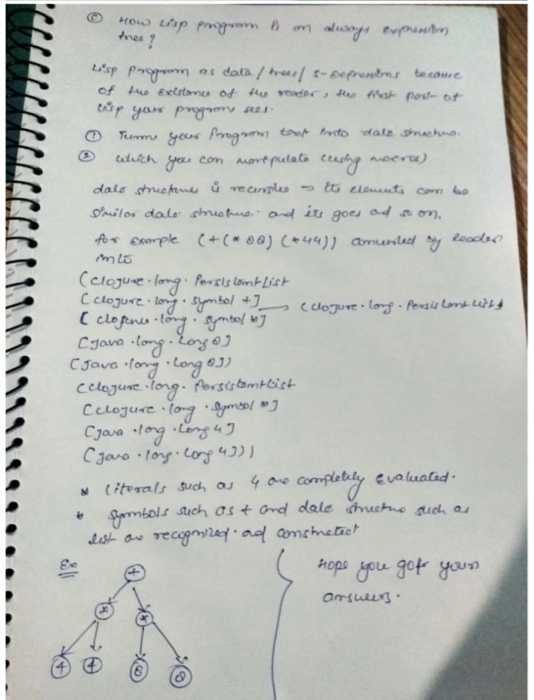 © How Lisp program is on always expression
tree?
Lisp program as data/trees/s-expressions because
of the existance of the reader, the first part of
Lisp your program sees.
① Turns your Program text into date structure.
② which you can manipulate (using macros)
date structure is recursive → its elements can be
similar date structure. and its goes ad so on.
for example (+(* 00) (*44)) converted by Reader
into
(clojure.long.PersistentList
[clojure.long.symbol +] → (clojure.long.PersistentList)
[clojure.long.symbol *]
[java.long.Long 0]
(java.long.Long 0])
(clojure.long.PersistentList
[clojure.long.symbol *]
[java.long.Long 4]
[java.long.Long 4]))
* Literals such as 4 are completely evaluated.
* symbols such as + and date structure such as
list are recognized. ad constructed
Ex
+
* *
4 4 0 0
Hope you got your
answers.